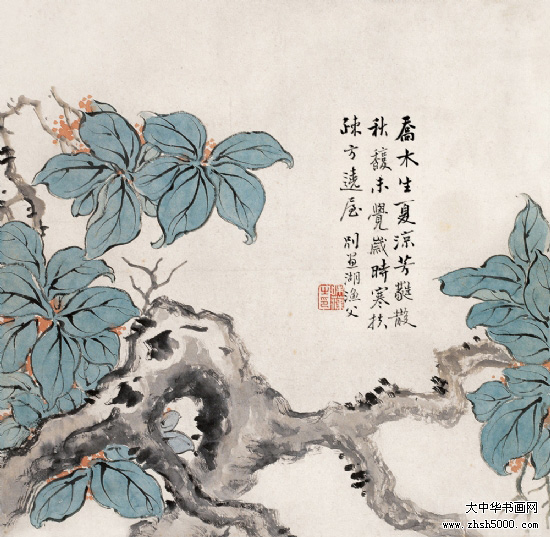 喬木生夏涼芳蕤散
秋馥未覺歲時寒扶
疎方遶屋 湖漁父
大中华书画网
www.zhsh5000.com